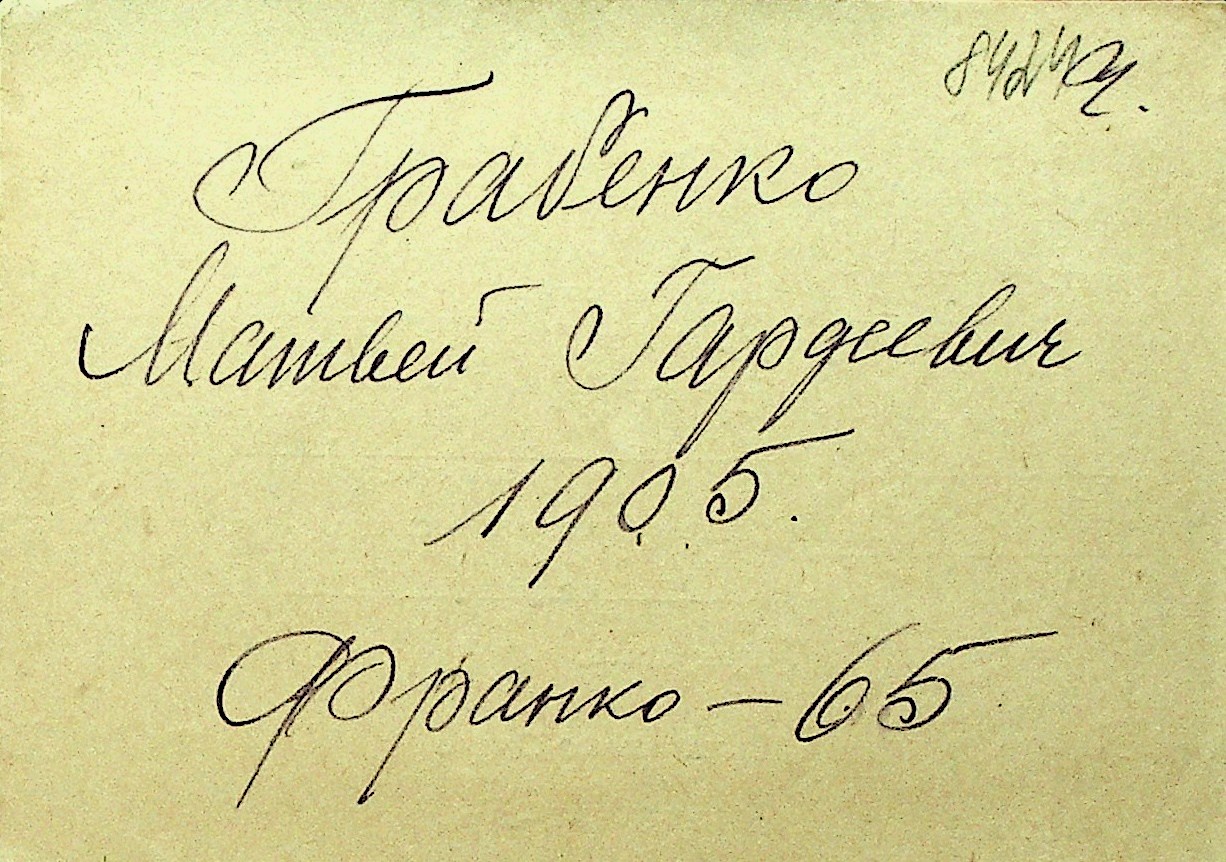 8424 ч.
Грабенко
Матвей Гардеевич
1905.
Франко - 65